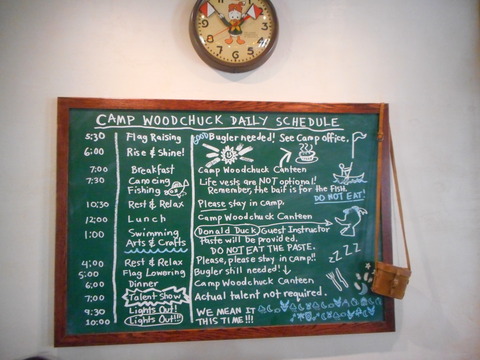 CAMP WOODCHUCK DAILY SCHEDULE
5:30 Flag Raising Bugler needed! See Camp office.
6:00 Rise & Shine!
7:00 Breakfast Camp Woodchuck Canteen
7:30 Canoeing Life vests are NOT optional!
Fishing Remember, the bait is for the FISH.
DO NOT EAT!
10:30 Rest & Relax Please stay in camp.
12:00 Lunch Camp Woodchuck Canteen
1:00 Swimming Donald Duck, Guest Instructor
Arts & Crafts Paste will be provided.
DO NOT EAT THE PASTE.
4:00 Rest & Relax Please, please stay in camp! zZZZ
5:00 Flag Lowering Bugler still needed!
6:00 Dinner Camp Woodchuck Canteen
7:00 Talent Show Actual talent not required.
9:30 Lights Out! WE MEAN IT
10:00 Lights Out!! THIS TIME!!!